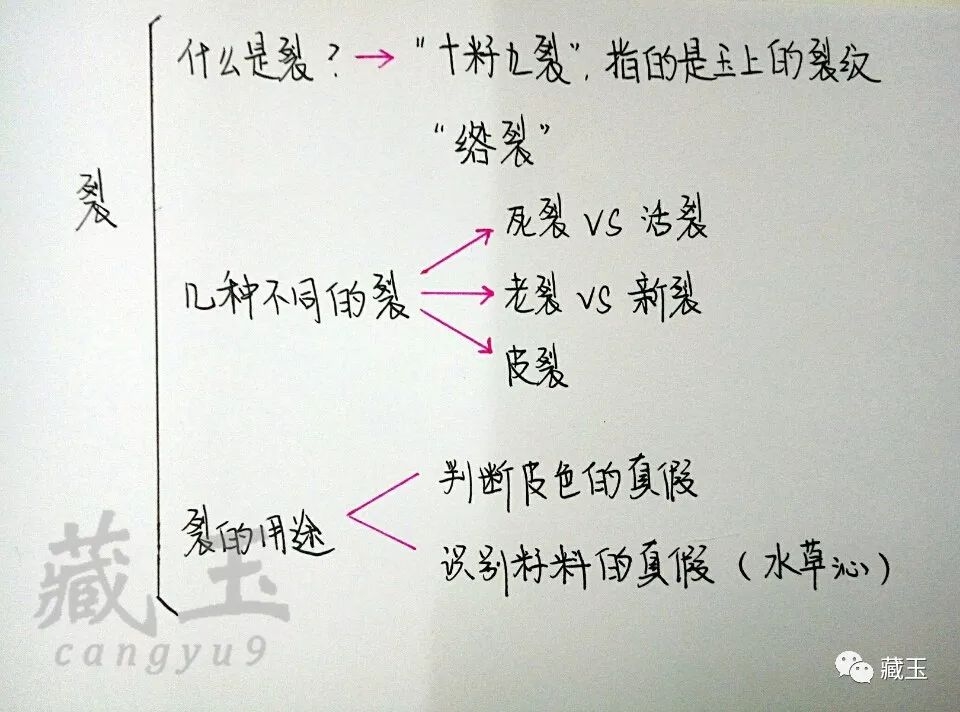 什么是裂？→“十籽九裂”，指的是玉上的裂纹
“绺裂”
裂
死裂 VS 活裂
几种不同的裂
老裂 VS 新裂
皮裂
判断皮色的真假
裂的用途
识别籽料的真假（水草沁）
藏玉
cangyu9
藏玉